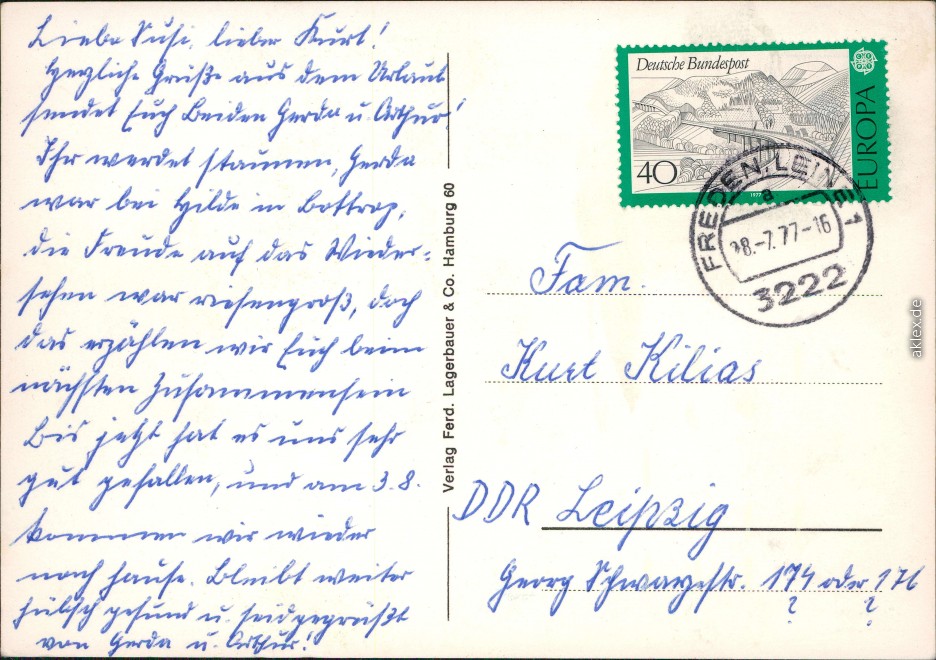 Liebe Susi, lieber Kurt!
Herzliche Grüße aus dem Urlaub
sendet Euch Beiden Gerda u. Arthur!
Ihr werdet staunen, Gerda
war bei Hilde in Bottrop,
die Freude auf das Wieder-
sehen war riesengroß, doch
das erzählen wir Euch beim
nächsten Zusammensein
Bis jetzt hat es uns sehr
gut gefallen, und am 3.8.
kommen wir wieder
nach hause. Bleibt weiter
hübsch gesund u. seid gegrüßt
von Gerda u. Arthur!
Verlag Ferd. Lagerbauer & Co. Hamburg 60
Deutsche Bundespost
EUROPA
40
1977
FREDEN, LEINE 1
a
28.-7.77-16
3222
Fam.
Kurt Kilias
DDR Leipzig
Georg Schwarzstr. 174 oder 176
? ?
aklex.de